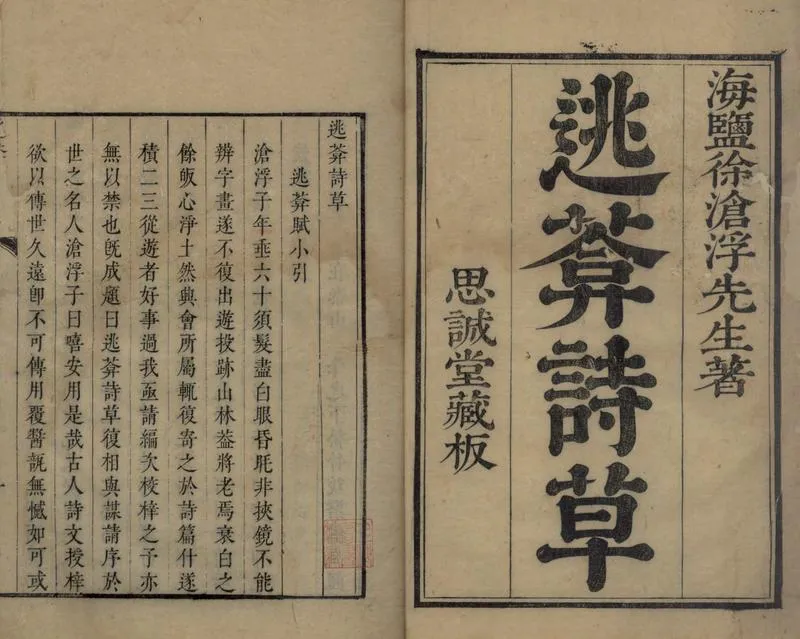 海鹽徐滄浮先生著
逃葊詩草
思誠堂藏板
逃葊詩草
逃葊賦小引
滄浮子年垂六十須髮盡白眼昏眊非挾鏡不能
辨字畫遂不復出遊投跡山林葢將老焉衰白之
餘皈心淨土然興會所屬輒復寄之於詩篇什遂
積二三從遊者好事過我亟請編次校梓之予亦
無以禁也旣成題曰逃葊詩草復相與謀請序於
世之名人滄浮子曰嘻安用是哉古人詩文授梓
欲以傳世久遠卽不可傳用覆醬瓿無憾如可或